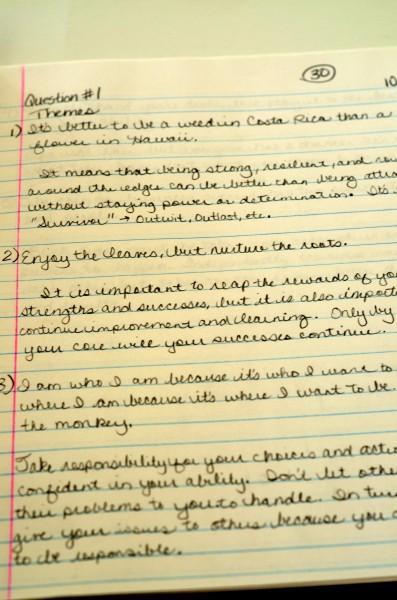 30
10
Question #1
Themes
1) It's better to be a weed in Costa Rica than a
flower in Hawaii.
It means that being strong, resilient, and
around the edges can be better than being
without staying power or determination. It's
"Survivor" → Outwit, Outlast, etc.
2) Enjoy the leaves, but nurture the roots.
It is important to reap the rewards of
strengths and successes, but it is also
continue improvement and learning. Only by
your core will your successes continue.
3) I am who I am because it's who I want to
where I am because it's where I want to be.
the monkey.
Take responsibility for your choices and
confident in your ability. Don't let
their problems to you to handle. In
give your issues to others because you
to be responsible.